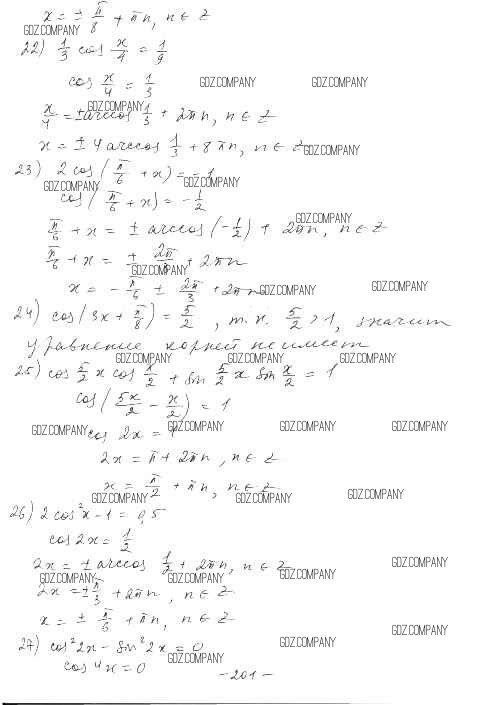 x = ± π/8 + πn, n ∈ Z
GDZ.COMPANY
22) 1/3 cos x/4 = 1/9
cos x/4 = 1/3
GDZ.COMPANY GDZ.COMPANY
GDZ.COMPANY
x/4 = ± arccos 1/3 + 2πn, n ∈ Z
x = ± 4 arccos 1/3 + 8πn, n ∈ Z
GDZ.COMPANY
23) 2 cos(π/6 + x) = -1
GDZ.COMPANY GDZ.COMPANY
cos(π/6 + x) = -1/2
GDZ.COMPANY
π/6 + x = ± arccos(-1/2) + 2πn, n ∈ Z
π/6 + x = ± 2π/3 + 2πn
GDZ.COMPANY
x = - π/6 ± 2π/3 + 2πn
GDZ.COMPANY GDZ.COMPANY
24) cos(3x + π/8) = 5/2, т.к. 5/2 > 1, значит
уравнение корней не имеет
GDZ.COMPANY GDZ.COMPANY GDZ.COMPANY
25) cos 5/2 x cos x/2 + sin 5/2 x sin x/2 = 1
cos(5x/2 - x/2) = 1
GDZ.COMPANY GDZ.COMPANY GDZ.COMPANY GDZ.COMPANY
cos 2x = 1
2x = π + 2πn, n ∈ Z
x = π/2 + πn, n ∈ Z
GDZ.COMPANY GDZ.COMPANY GDZ.COMPANY
26) 2 cos²x - 1 = 0,5
cos 2x = 1/2
2x = ± arccos 1/2 + 2πn, n ∈ Z
GDZ.COMPANY
GDZ.COMPANY GDZ.COMPANY GDZ.COMPANY
2x = ± π/3 + 2πn, n ∈ Z
x = ± π/6 + πn, n ∈ Z
GDZ.COMPANY
27) cos² 2x - sin² 2x = 0
GDZ.COMPANY GDZ.COMPANY
cos 4x = 0
- 201 -